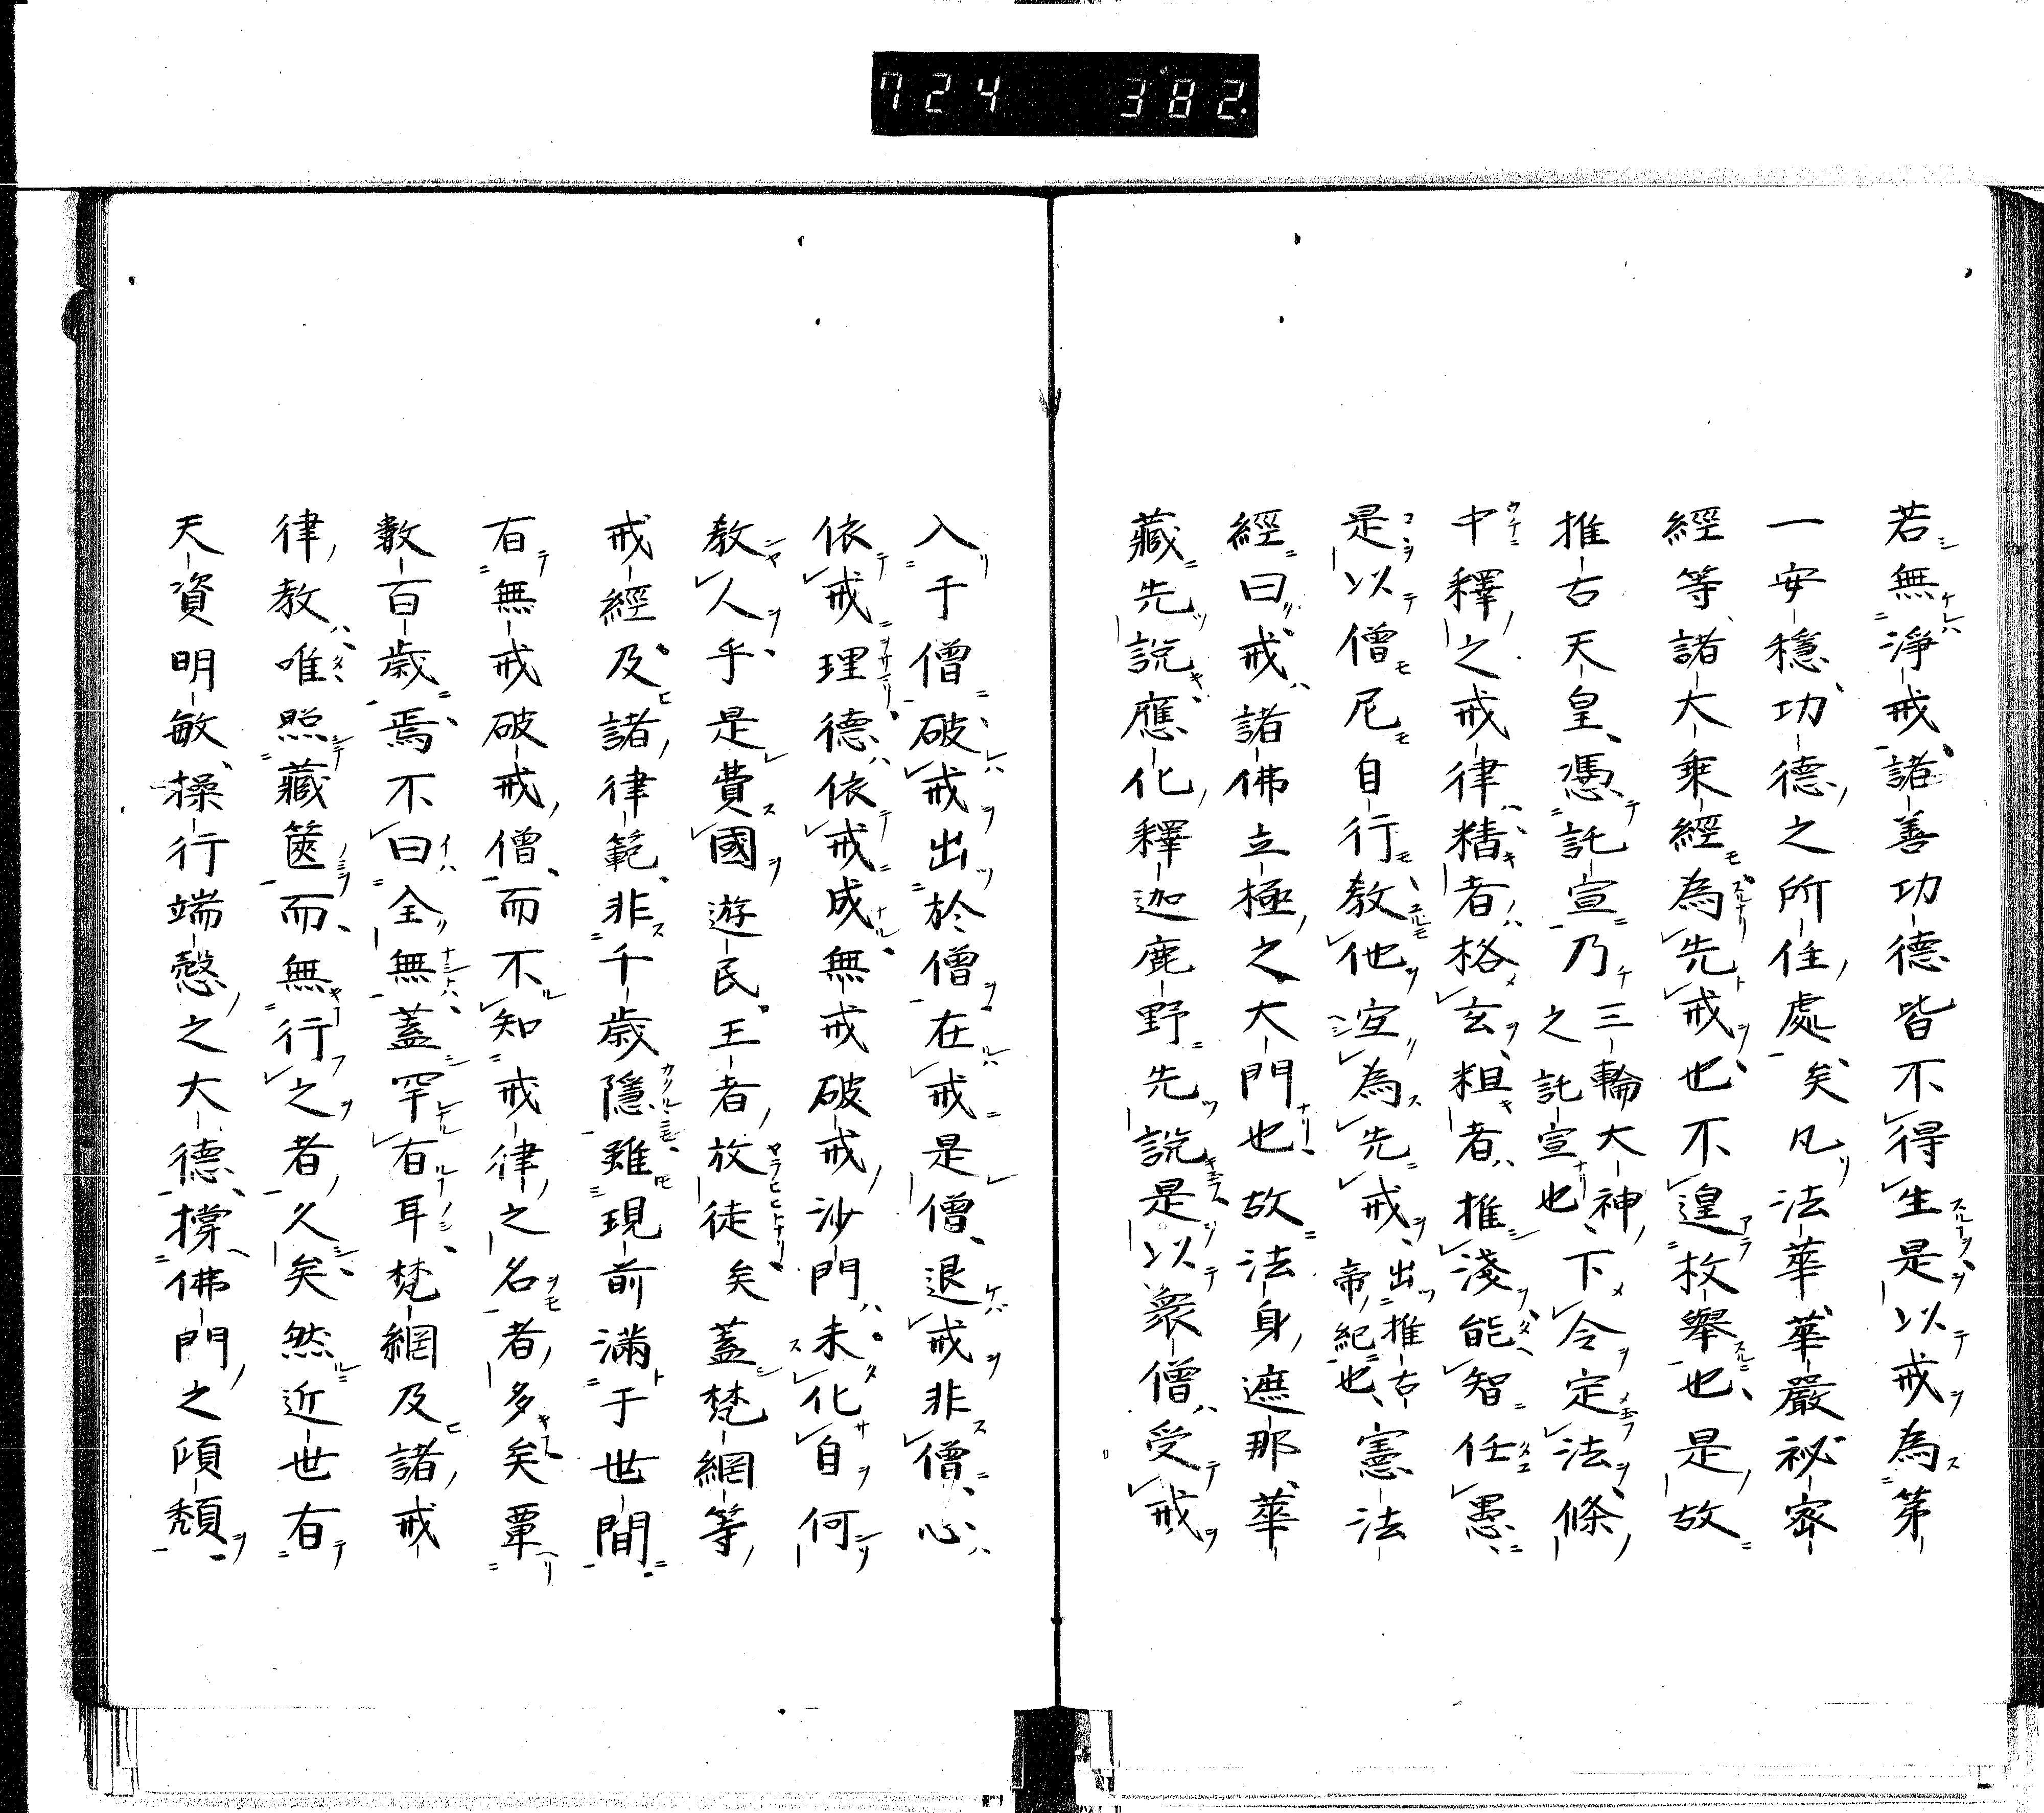 724 382
若無淨戒諸善功德皆不得生是以戒為第
一安穩功德之所住處矣凡法華華嚴祕密
經等諸大乘經為先戒也不遑枚舉也是故
推古天皇憑託宣乃三輪大神之託宣也下令定法條
中釋之戒律精者格玄粗者推淺能智任愚
是以僧尼自行教他宜為先戒出推古帝紀也憲法
經曰戒諸佛立極之大門也故法身遮那華
藏先說應化釋迦鹿野先說是以衆僧受戒
入于僧破戒出於僧在戒是僧退戒非僧心
依戒理德依戒成無戒破戒沙門未化自何
教人乎是費國遊民王者放徒矣蓋梵網等
戒經及諸律範非千歲隱雖現前滿于世間
有無戒破戒僧而不知戒律之名者多矣覃
數百歲焉不曰全無蓋罕有耳梵網及諸戒
律教唯照藏篋而無行之者久矣然近世有
天資明敏操行端愨之大德撐佛門之傾頹